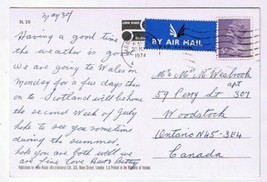 DL 20
Having a good time
the weather is good
we are going to Wales on
Monday for a few days then
on to Scotland will be home
the second week of July
hope to see you sometime
during the summer.
hope you are both well we
are fine Love
BY AIR MAIL
1974
Mr & Mrs N. Wesbrook
apt
59 Perry St 307
Woodstock
Ontario N4S-3E4
Canada